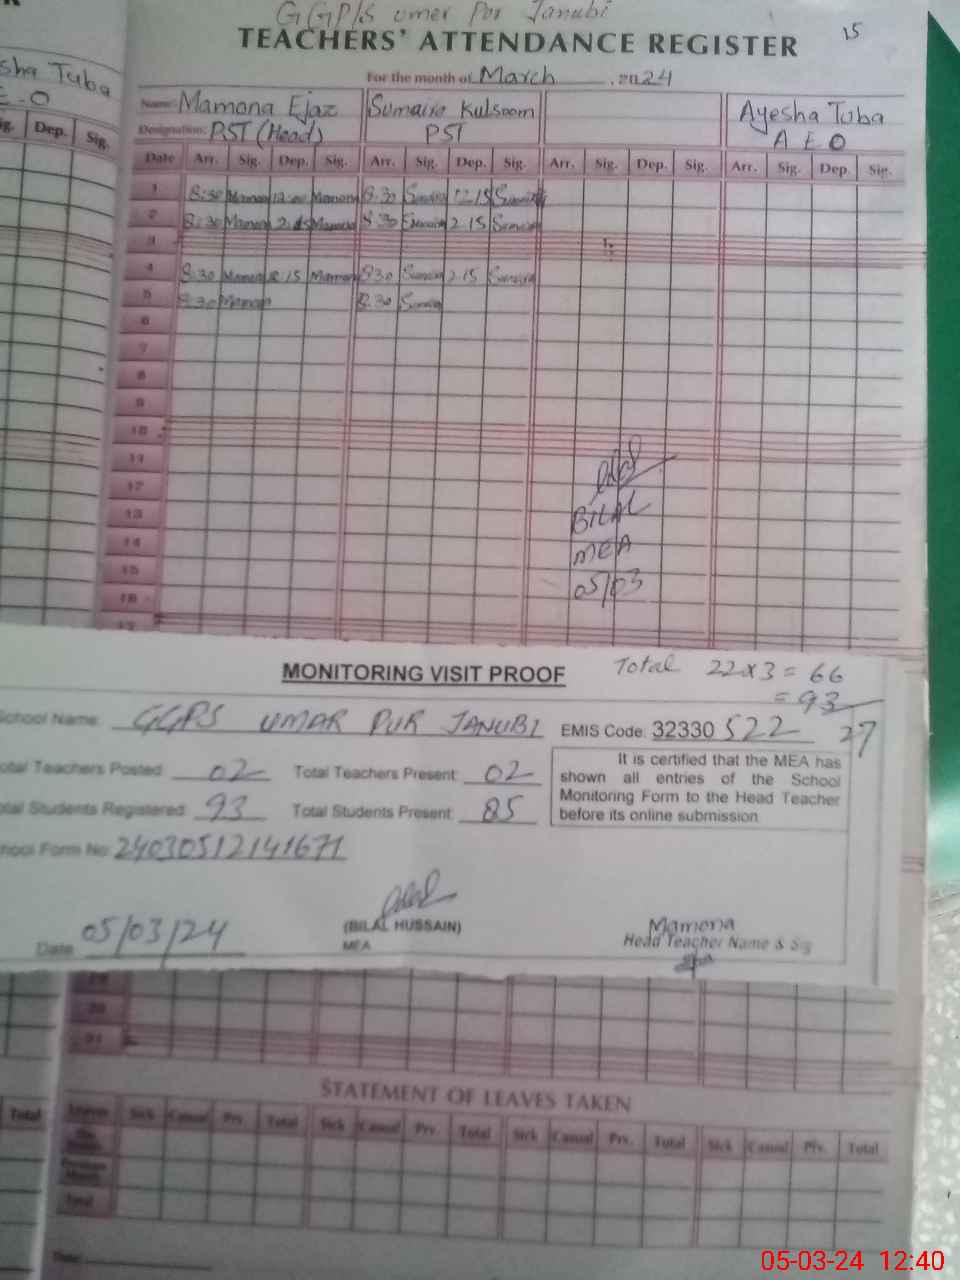 GGP/S umer Por Janubi
15
TEACHERS' ATTENDANCE REGISTER
For the month of March , 2024
sha Tuba
E-O
Name: Mamona Ejaz Sumaira Kulsoom Ayesha Tuba
Designation: PST (Head) PST A E O
ig. Dep. Sig.
Date Arr. Sig. Dep. Sig. Arr. Sig. Dep. Sig. Arr. Sig. Dep. Sig. Arr. Sig. Dep. Sig.
1 8:30 Mamona 12:00 Mamona 8:30 12:15
2 8:30 Mamona 2:15 Mamona 8:30 2:15
3
4 8:30 Mamona 2:15 Mamona 8:30 2:15
5 8:30 Mamona 8:30
6
7
8
9
10
11
12
13
14
15
16
17
BILAL
MEA
05/03
MONITORING VISIT PROOF
Total 22x3 = 66
= 93
27
School Name: GGPS UMAR PUR JANUBI EMIS Code: 32330 522
otal Teachers Posted: 02 Total Teachers Present: 02
otal Students Registered: 93 Total Students Present: 85
It is certified that the MEA has
shown all entries of the School
Monitoring Form to the Head Teacher
before its online submission
hool Form No: 24030512141671
Date 05/03/24
(BILAL HUSSAIN)
MEA
Mamona
Head Teacher Name & Sig
29
30
31
STATEMENT OF LEAVES TAKEN
Total
Leaves Sick Casual Prv. Total Sick Casual Prv. Total Sick Casual Prv. Total Sick Casual Prv. Total
Previous Month
Total
05-03-24 12:40